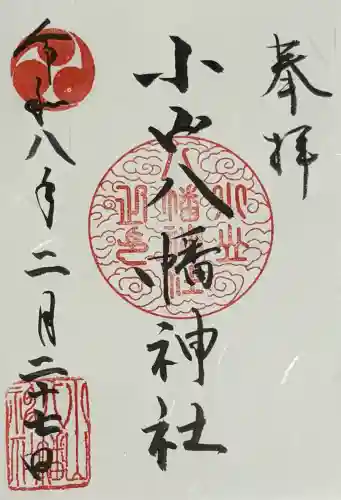 奉拝
小山八幡神社
令和八年二月二十七日